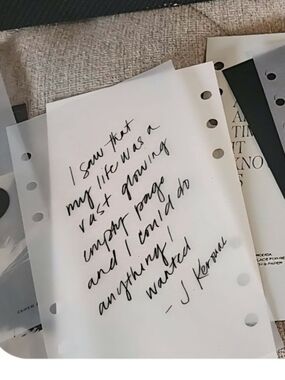 I saw that
my life was a
vast glowing
empty page
and I could do
anything I
wanted
- J. Kerouac
A
TI
IT
KNO